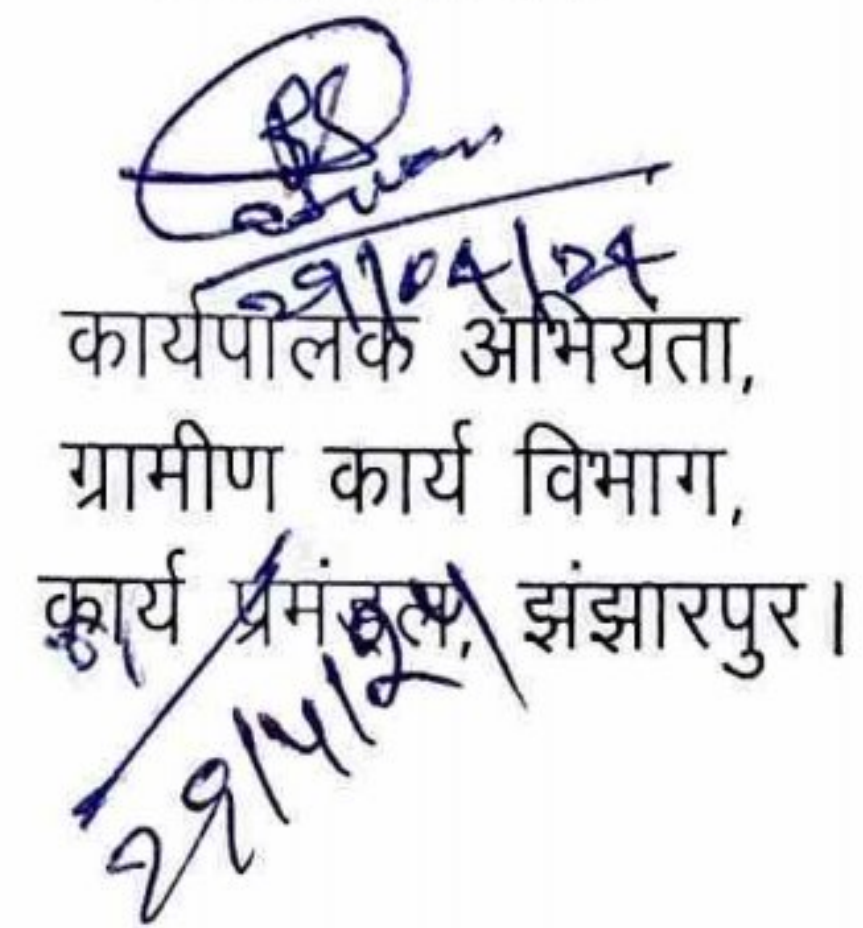 29/04/24
कार्यपालक अभियंता,
ग्रामीण कार्य विभाग,
कार्य प्रमंडल, झंझारपुर।
29/4/24